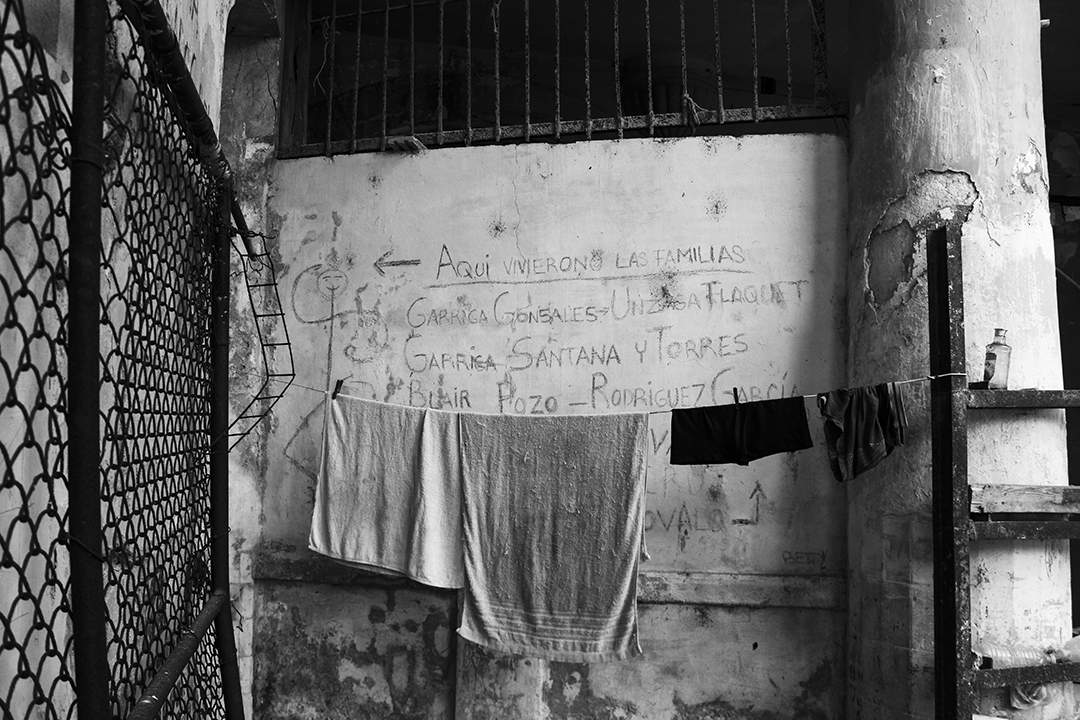 ← AQUI VIVIERON LAS FAMILIAS
GARRIGA GONSALES-UNZAGA TLAQUET
GARRIGA SANTANA Y TORRES
BLAIR POZO - RODRIGUEZ GARCÍA
OVALO
BETTY